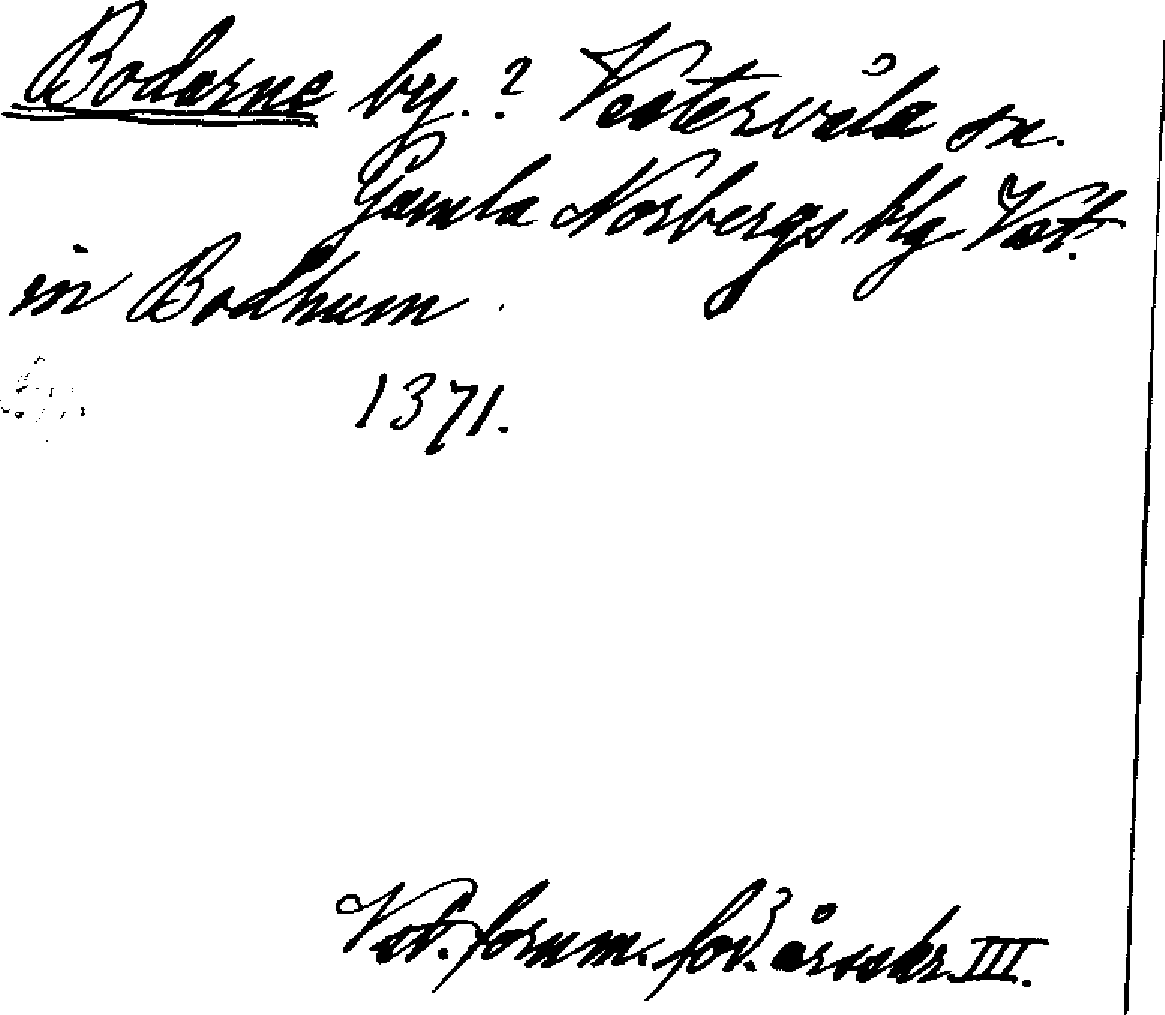 Bodarne by. ? Vestervåla sn.
Gamla Norbergs blg Vst.
in Bodhum.
1371.
Vst. fornm. för. årsskr. III.